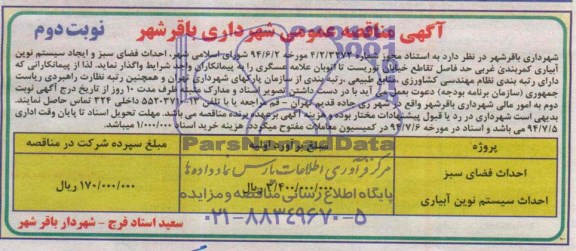 آگهی مناقصه عمومی شهرداری باقرشهر
نوبت دوم
شهرداری باقرشهر در نظر دارد به استناد مجوز شماره مورخه ۹۴/۶/۲ شورای اسلامی شهر، احداث فضای سبز و ایجاد سیستم نوین
آبیاری کمربندی غربی حد فاصل تقاطع خیابان تا اتوبان علامه عسگری را به پیمانکاران واجد شرایط واگذار نماید. لذا از پیمانکارانی که
دارای رتبه بندی نظام مهندسی کشاورزی، منابع طبیعی، رتبه‌بندی از سازمان پارکهای شهرداری تهران و همچنین رتبه نظارت راهبردی ریاست
جمهوری (سازمان برنامه بودجه) دعوت بعمل می آید با در دست داشتن تصویر اسناد و مدارک مثبته ظرف مدت ۱۰ روز از تاریخ درج آگهی نوبت
دوم به امور مالی شهرداری باقرشهر واقع در شهر ری جاده قدیم تهران - قم مراجعه یا با تلفن داخلی ۳۲۴ تماس حاصل نمایند.
بدیهی است شهرداری در رد یا قبول پیشنهادات مختار بوده و هزینه آگهی برعهده برنده مناقصه می باشد. مهلت تحویل اسناد تا پایان وقت اداری
۹۴/۷/۵ می باشد و اسناد در مورخه ۹۴/۷/۶ در کمیسیون معاملات مفتوح میگردد. هزینه خرید اسناد ۱/۰۰۰/۰۰۰ میباشد.
پروژه
مبلغ برآورد اولیه
مبلغ سپرده شرکت در مناقصه
احداث فضای سبز
احداث سیستم نوین آبیاری
۳/۴۰۰/۰۰۰/۰۰۰ ریال
۱۷۰/۰۰۰/۰۰۰ ریال
ParsNamadData
مرکز فرآوری اطلاعات پارس نماد داده ها
پایگاه اطلاع رسانی مناقصه و مزایده
۰۲۱-۸۸۳۴۹۶۷۰-۵
سعید استاد فرج - شهردار باقر شهر